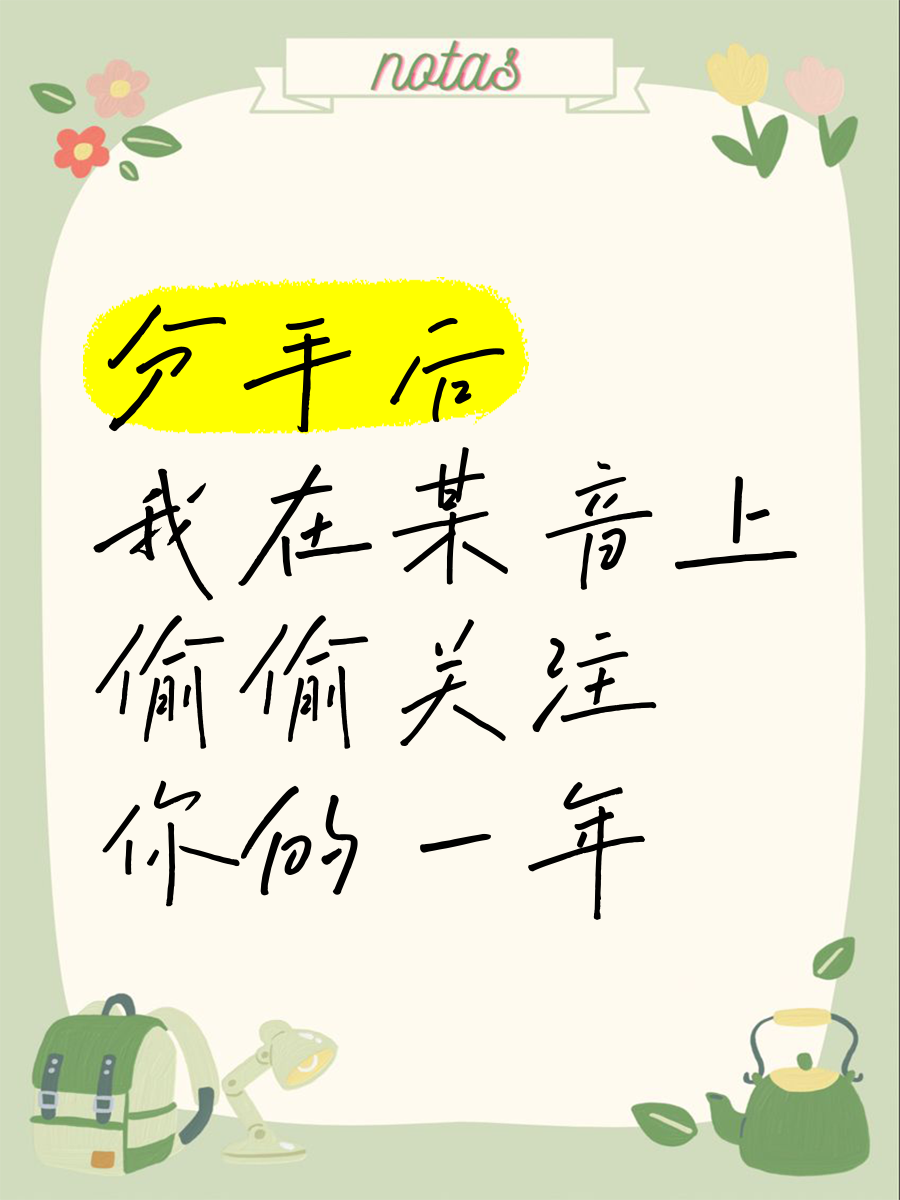 notas
分手后
我在某音上
偷偷关注
你的一年